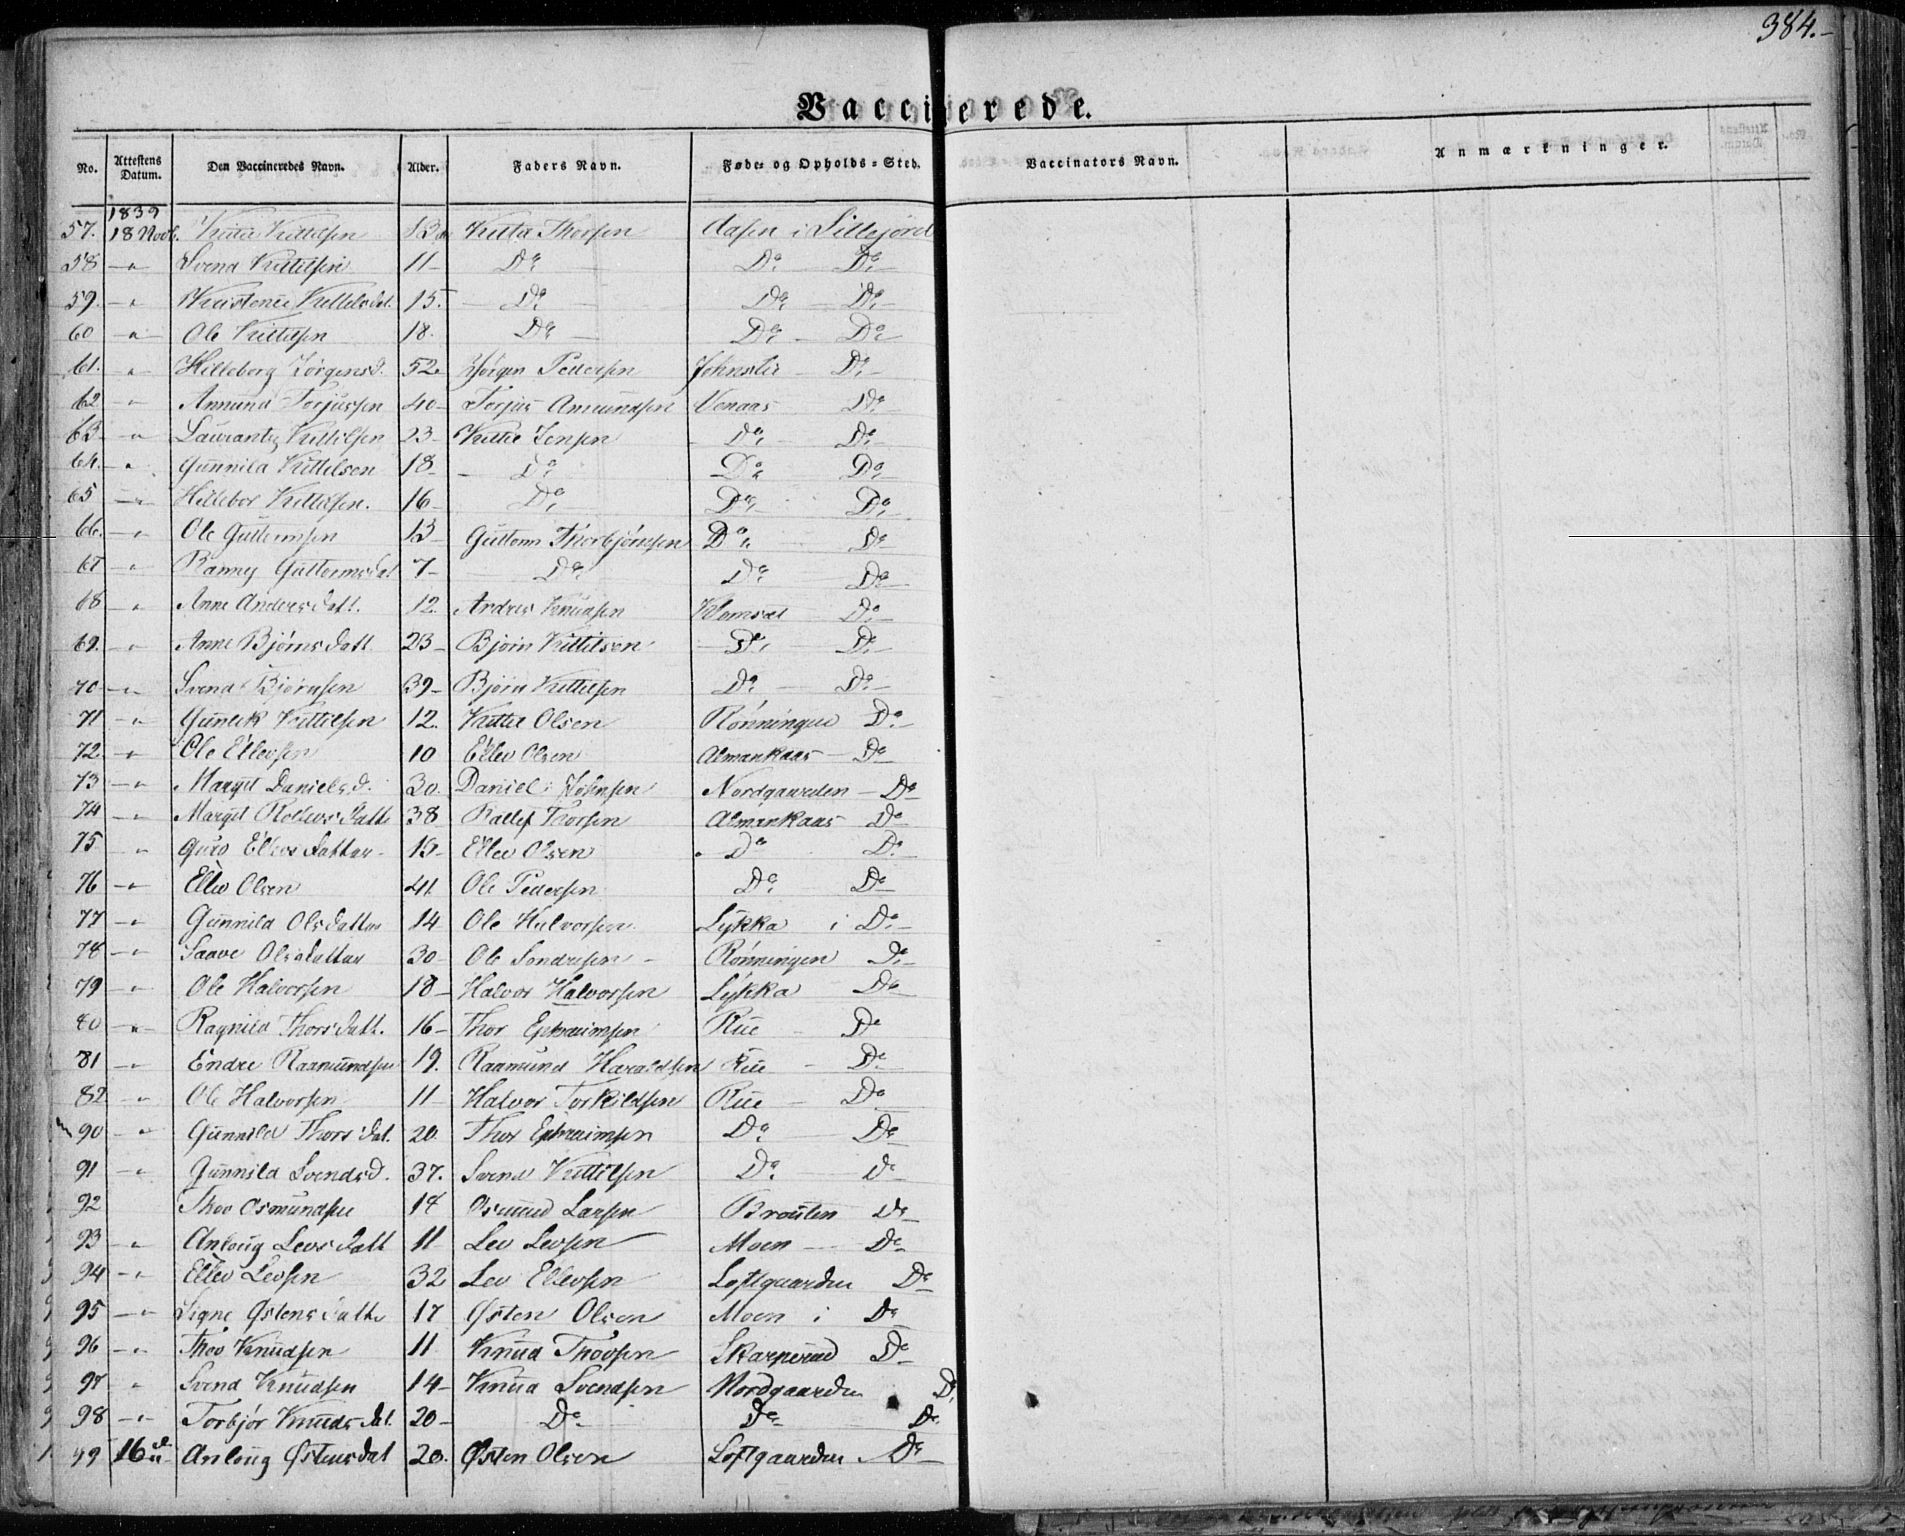 384.
Vaccinerede.
No. Attestens Datum. Den Vaccineredes Navn. Alder. Faders Navn. Føde- og Opholds-Sted. Vaccinators Navn. Anmærkninger.
1839
57. 18 Novb. Kittil Kittilsen 13 Kittil Thorsen Aasen i Sillejord
58 -"- Svend Kittilsen 11- Do Do Do
59. -"- Kittelsdat. 15. Do Do Do
60 -"- Ole Kittilsen 18. Do Do Do
61. " Hilleborg Jörgensd. 52. Jörgen Pedersen Do
62 -"- Annund Torjussen 40- Torjus Amundsen Venaas Do
63- -"- Kittilsen 23- Kittil Jensen Do Do
64. -"- Gunnild Kittilsen 18- Do Do Do
65 -"- Hillebor Kittilsen. 16- Do Do Do
66. -"- Ole Guttormsen 13 Guttorm Thorbjörnsen Do Do
67 " Ranney Guttormsdat 7- Do Do Do
68 -"- Anne Andersdatt. 12. Andres Knudsen Do
69. -"- Anne Bjørnsdatt 23- Bjørn Kittilsen Do Do
70- -"- Svend Biørnsen 39- Bjørn Kittilsen Do Do
71 -"- Gunleik Kittilsen 12. Kittil Olsen Rönningen Do
72. -"- Ole Ellevsen 10 Ellev Olsen Almankaas Do
73 -"- Margit Danielsd. 30. Daniel Johnsen Nordgaarden - Do
74 -"- Margit Rollevsdatt 38 Rallef Thorsen Almankaas Do
75 " Guro Ellevsdatter- 15- Ellev Olsen Do Do
76 -"- Ellev Olsen 41. Ole Pedersen Do Do
77 -"- Gunnild Olsdatter 14 Ole Halvorsen Lykka i Do
78 -"- Saave Olsdatter 30- Ole Sondresen - Rönningen Do
79 -"- Ole Halvorsen 18- Halvor Halvorsen Lykka Do
80 -"- Ragnild Thorsdatt. 16- Thor Ephraimsen Rue - Do
81 -"- Endre Raamundsen 19. Raamund Haraldsen Rue - Do
82 -"- Ole Halvorsen 11- Halvor Torkildsen Rue - Do
90 -"- Gunnild Thorsdat. 20. Thor Ephraimsen Do Do
91 -"- Gunnild Svendsd. 37. Svend Kittilsen Do Do
92 Thov Osmundsen 18 Osmund Larsen Broüten Do
93 -"- Anloug Levsdatt 11 Lev Levsen Moen - Do
94 -"- Ellev Levsen 32 Lev Ellevsen Loftgaarden Do
95 -"- Signe Østensdatt 17 Østen Olsen Moen i Do
96 -"- Thov Knudsen 11 Knud Thovsen Skarperud Do
97 " Svend Knudsen 14- Knud Svendsen Nordgaarden Do
98 -"- Torbjør Knudsdat. 20- Do Do Do
99 16 Anloug Østensdat 20. Østen Olsen Loftgaarden Do